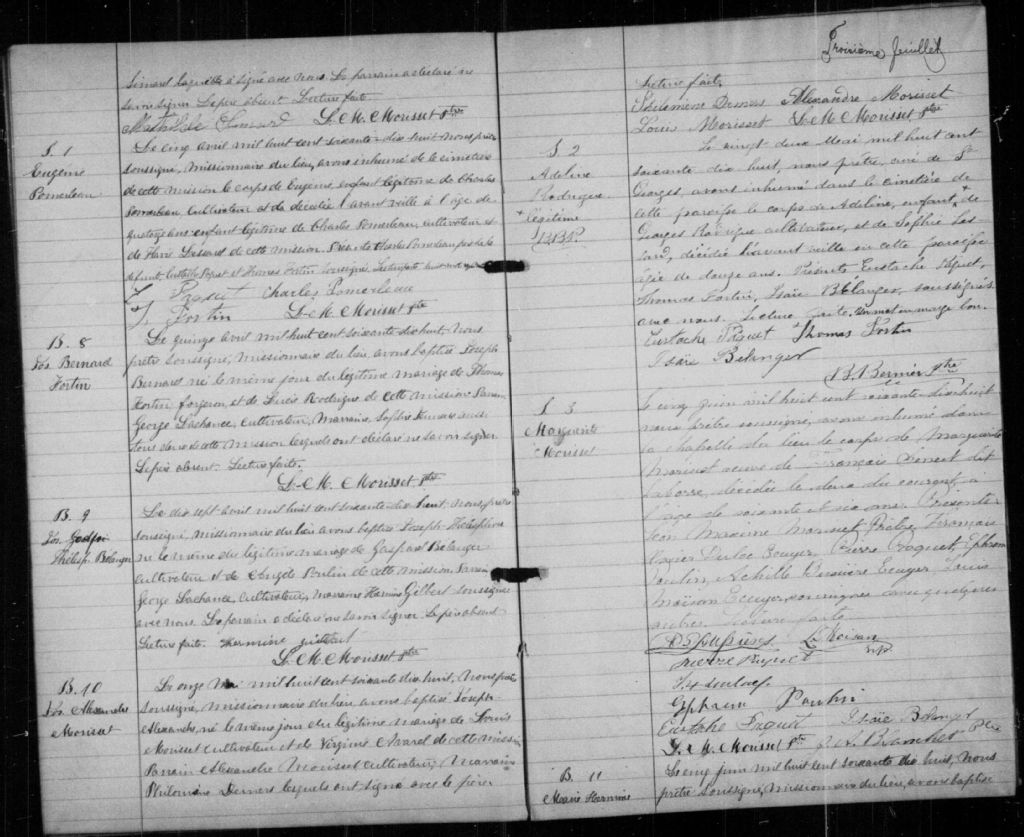 Simard laquelle a signé avec nous. Le parrain a declaré ne
savoir signer. Le père absent Lecture faite.
Mathilde Simard L. M. Morisset Ptre
S. 1
Eugénie
Pomerleau
Le cinq avril mil huit cent soixante-dix huit nous prêtre
soussigné, missionnaire du lieu, avons inhumé de le cimetière
de cette mission le corps de Eugénie, enfant légitime de Charles
Pomerleau, Cultivateur et de décedée l'avant veille à l'âge de
quatorze ans enfant légitime de Charles Pomerleau, cultivateur et
de Flavie de cette mission. Présents Charles Pomerleau père de la
défunte Paquet et Thomas Fortin soussignés. Lecture faite
Paquet Charles Pomerleau
T. Fortin L. M. Morisset Ptre
B. 8
Jos. Bernard
Fortin
Le quinze avril mil huit cent soixante dix huit Nous
prêtre soussigné, missionnaire du lieu avons baptisé Joseph
Bernard né le même jour du légitime mariage de Thomas
Fortin forgeron, et de Lucie Rodrigue de cette mission Parrain
George Lachance, Cultivateur, Marraine, Sophie
de cette mission lesquels ont déclaré ne savoir signer.
Le père absent. Lecture faite.
L. M. Morisset Ptre
B. 9
Jos.
Thélesp. Bélanger
Le dix sept avril mil huit cent soixante dix huit, Nous, prêtre
soussigné, missionnaire du lieu avons baptisé Joseph Thélesphore
né le même du légitime mariage de Gaspard Bélanger
cultivateur et de Angèle Poulin de cette mission, Parrain
George Lachance, Cultivateur, Marraine Hermine Gilbert soussignée
avec nous. Le parrain a déclaré ne savoir signer. Le père absent
Lecture faite. Hermine
L. M. Morisset Ptre
B. 10
Jos. Alexandre
Morisset
Le onze Mai mil huit cent soixante dix huit, Nous prêtre
soussigné, missionnaire du lieu avons baptisé Joseph
Alexandre, né le même jour du légitime mariage de Louis
Morisset cultivateur et de Virginie de cette mission
Parrain Alexandre Morisset cultivateur, Marraine
Philomène Demers lesquels ont signé avec le père
Troisième feuillet
Lecture faite
Philomène Demers Alexandre Morisset
Louis Morisset L. M. Morisset Ptre
S. 2
Adeline
Rodrigue
+ légitime
B.B.P.
Le vingt deux Mai mil huit cent
soixante dix huit, nous prêtre, curé de St
Georges avons inhumé dans le cimetière de
cette paroisse le corps de Adeline, enfant, + de
Georges Rodrigue cultivateur, et de Sophie Les-
sard, décédée l'avant veille en cette paroisse
âgée de douze ans. Présents Eustache Paquet,
Thomas Fortin, Isaïe Bélanger, soussignés
avec nous. Lecture faite. Un mot en marge bon.
Eustache Paquet Thomas Fortin
Isaïe Bélanger
B. Bernier Ptre
S. 3
Marguerite
Morisset
Le cinq juin mil huit cent soixante dix huit
nous prêtre soussigné, avons inhumé dans
la chapelle du lieu le corps de Marguerite
Morisset veuve de François dit
Laborse, décédée le deux du courant à
l'âge de soixante et six ans. Présents
Jean Maxime Morisset Prêtre, François
Xavier Ecuyer, Pierre Paquet, Ephrem
Poulin, Achille Ecuyer, Louis
Ecuyer, soussignés avec quelques
autres. Lecture faite
L.
N.P.
Pierre Paquet
Ephrem Poulin
Eustache Paquet Isaïe Bélanger
L. M. Morisset Ptre J. A. Blanchet Ptre
B. 11
Marie Hermine
Le cinq juin mil huit cent soixante dix huit, Nous
prêtre soussigné, missionnaire du lieu, avons baptisé